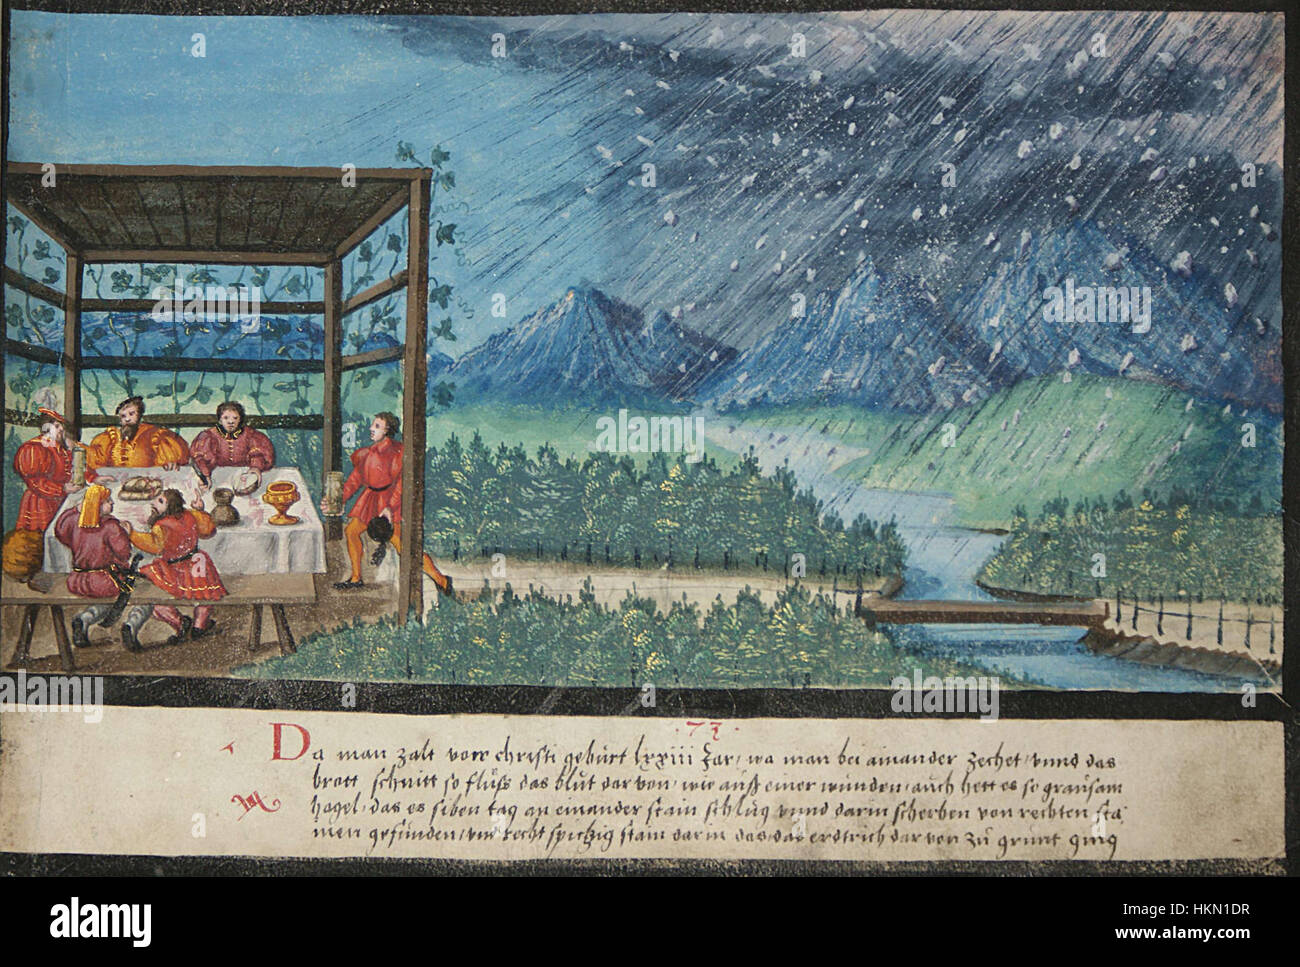 73.
Da man zalt vorr christi geburt lxxiii Jar, wa man bei ainander zechet, vnnd das
brott schnitt so flüss das blut dar von, wie auss einer wunden, auch hett es so grausam
hagel, das es siben tag an einander stain schlug vnnd darin scherben von rechten sta,
men gefunden, vnd recht spitzig stain darin das das erdtrich dar von zu grunt ging
alamy
Image ID: HKN1DR
www.alamy.com